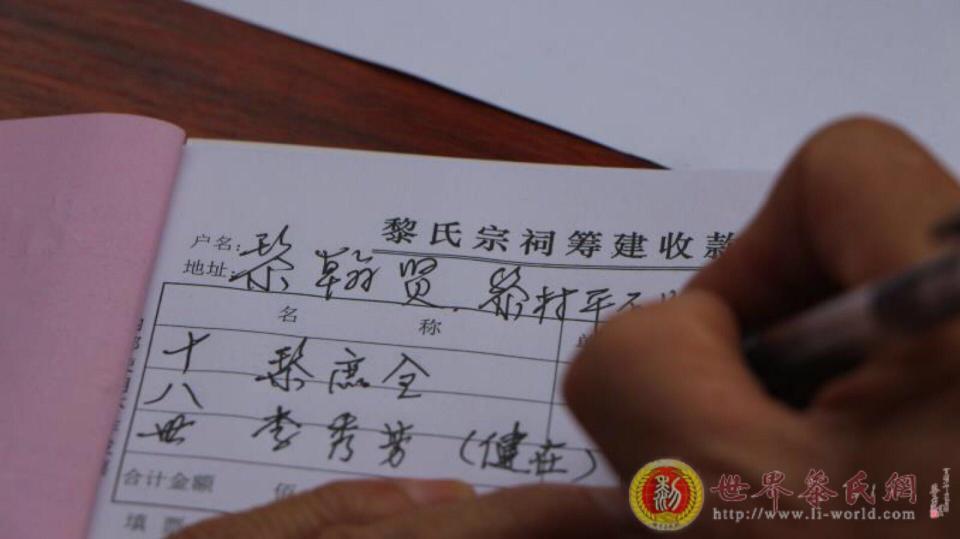 黎氏宗祠筹建收款
户名:
地址:
黎翰贤
名 称
十 黎庶全
八
世 李秀芳(健在)
合计金额 佰
填票
世界黎氏網
http://www.li-world.com